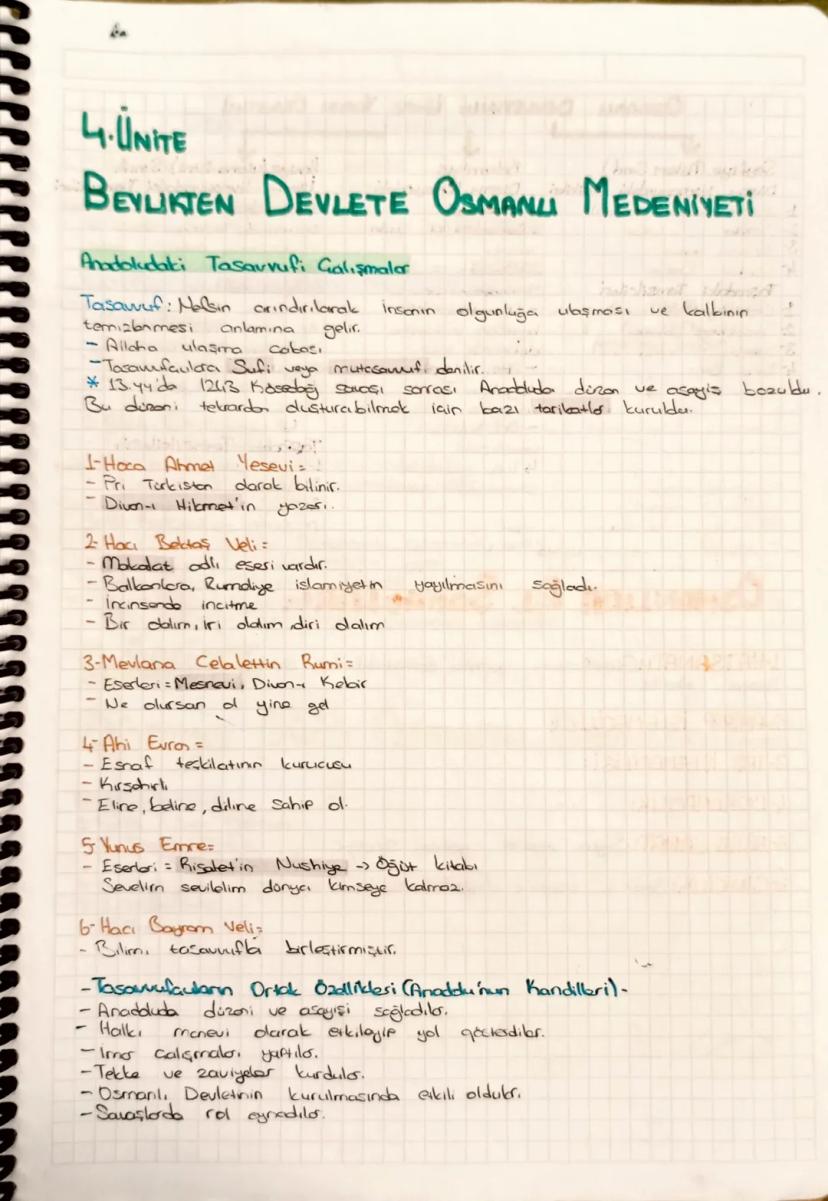 4.ÜNİTE
BEYLİKTEN DEVLETE OSMANLI MEDENİYETİ
Anadoludaki Tasavvufi Çalışmalar
Tasavvuf: Nefsin arındırılarak insanın olgunluğa ulaşması ve kalbinin
temizlenmesi anlamına gelir.
- Allaha ulaşma çabası
- Tasavvufçulara Sufi veya mutasavvuf. denilir.
* 13.yy'da 1243 Kösedağ savaşı sonrası Anadoluda düzen ve asayiş bozuldu.
Bu düzeni tekrardan oluşturabilmek için bazı tarikatlar kuruldu.
1-Hoca Ahmet Yesevi=
- Pri Türkistan olarak bilinir.
- Divan-ı Hikmet'in yazarı.
2-Hacı Bektaş Veli=
- Makalat adlı eseri vardır.
- Balkanlara, Rumeliye islamiyetin yayılmasını sağladı.
- İncinsende incitme
- Bir olalım, iri olalım, diri olalım
3-Mevlana Celalettin Rumi=
- Eserleri = Mesnevi, Divan-ı Kebir
- Ne olursan ol yine gel
4-Ahi Evran=
- Esnaf teşkilatının kurucusu
- Kırşehirli
- Eline, beline, diline sahip ol.
5-Yunus Emre=
- Eserleri = Risalet'in Nushiye -> Öğüt kitabı
Sevelim sevilelim dünya kimseye kalmaz.
6-Hacı Bayram Veli=
- Bilimi tasavvufla birleştirmiştir.
- Tasavvufçuların Ortak Özellikleri (Anadolu'nun Kandilleri) -
- Anadoluda düzeni ve asayişi sağladılar.
- Halkı manevi olarak etkileyip yol gösterdiler.
- İmar çalışmaları yaptılar.
- Tekke ve zaviyeler kurdular.
- Osmanlı Devletinin kurulmasında etkili oldular.
- Savaşlarda rol oynadılar.